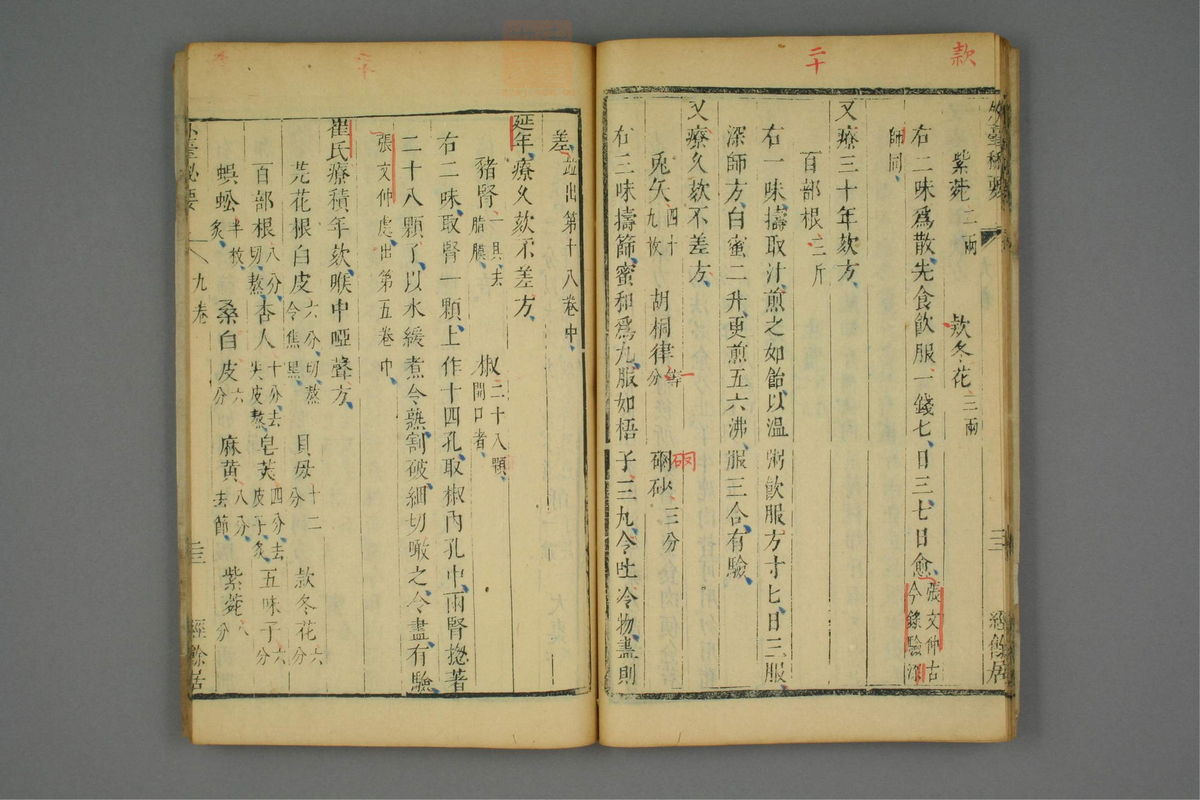 款
二十
外臺秘要
三
經餘居
紫菀二兩 欵冬花三兩
右二味爲散先食飲服一錢匕日三七日愈張文仲古今錄驗深
師同
又療三十年欬方
百部根二斤
右一味擣取汁煎之如飴以溫粥飲服方寸匕日三服
深師方白蜜二升更煎五六沸服三合有驗
又療久欬不差方
兎矢四十九枚 胡桐律一等分 硇砂三分
硇
右三味擣篩蜜和爲丸服如梧子三丸令吐冷物盡則
二十
差並出第十八卷中
延年療久欬不差方
猪腎一具去脂膜 椒二十八顆開口者
右二味取腎一顆上作十四孔取椒內孔中兩腎揔著
二十八顆了以水緩煮令熟割破細切噉之令盡有驗
張文仲處出第五卷中
崔氏療積年欬喉中啞聲方
芫花根白皮六分切熬令焦黑 貝母十二分 款冬花六分
百部根八分切熬 杏人十分去尖皮熬 皂莢四分去皮子炙 五味子六分
蜈蚣半枚炙 桑白皮六分 麻黄八分去節 紫菀八分
外臺秘要
九卷
三
經餘居